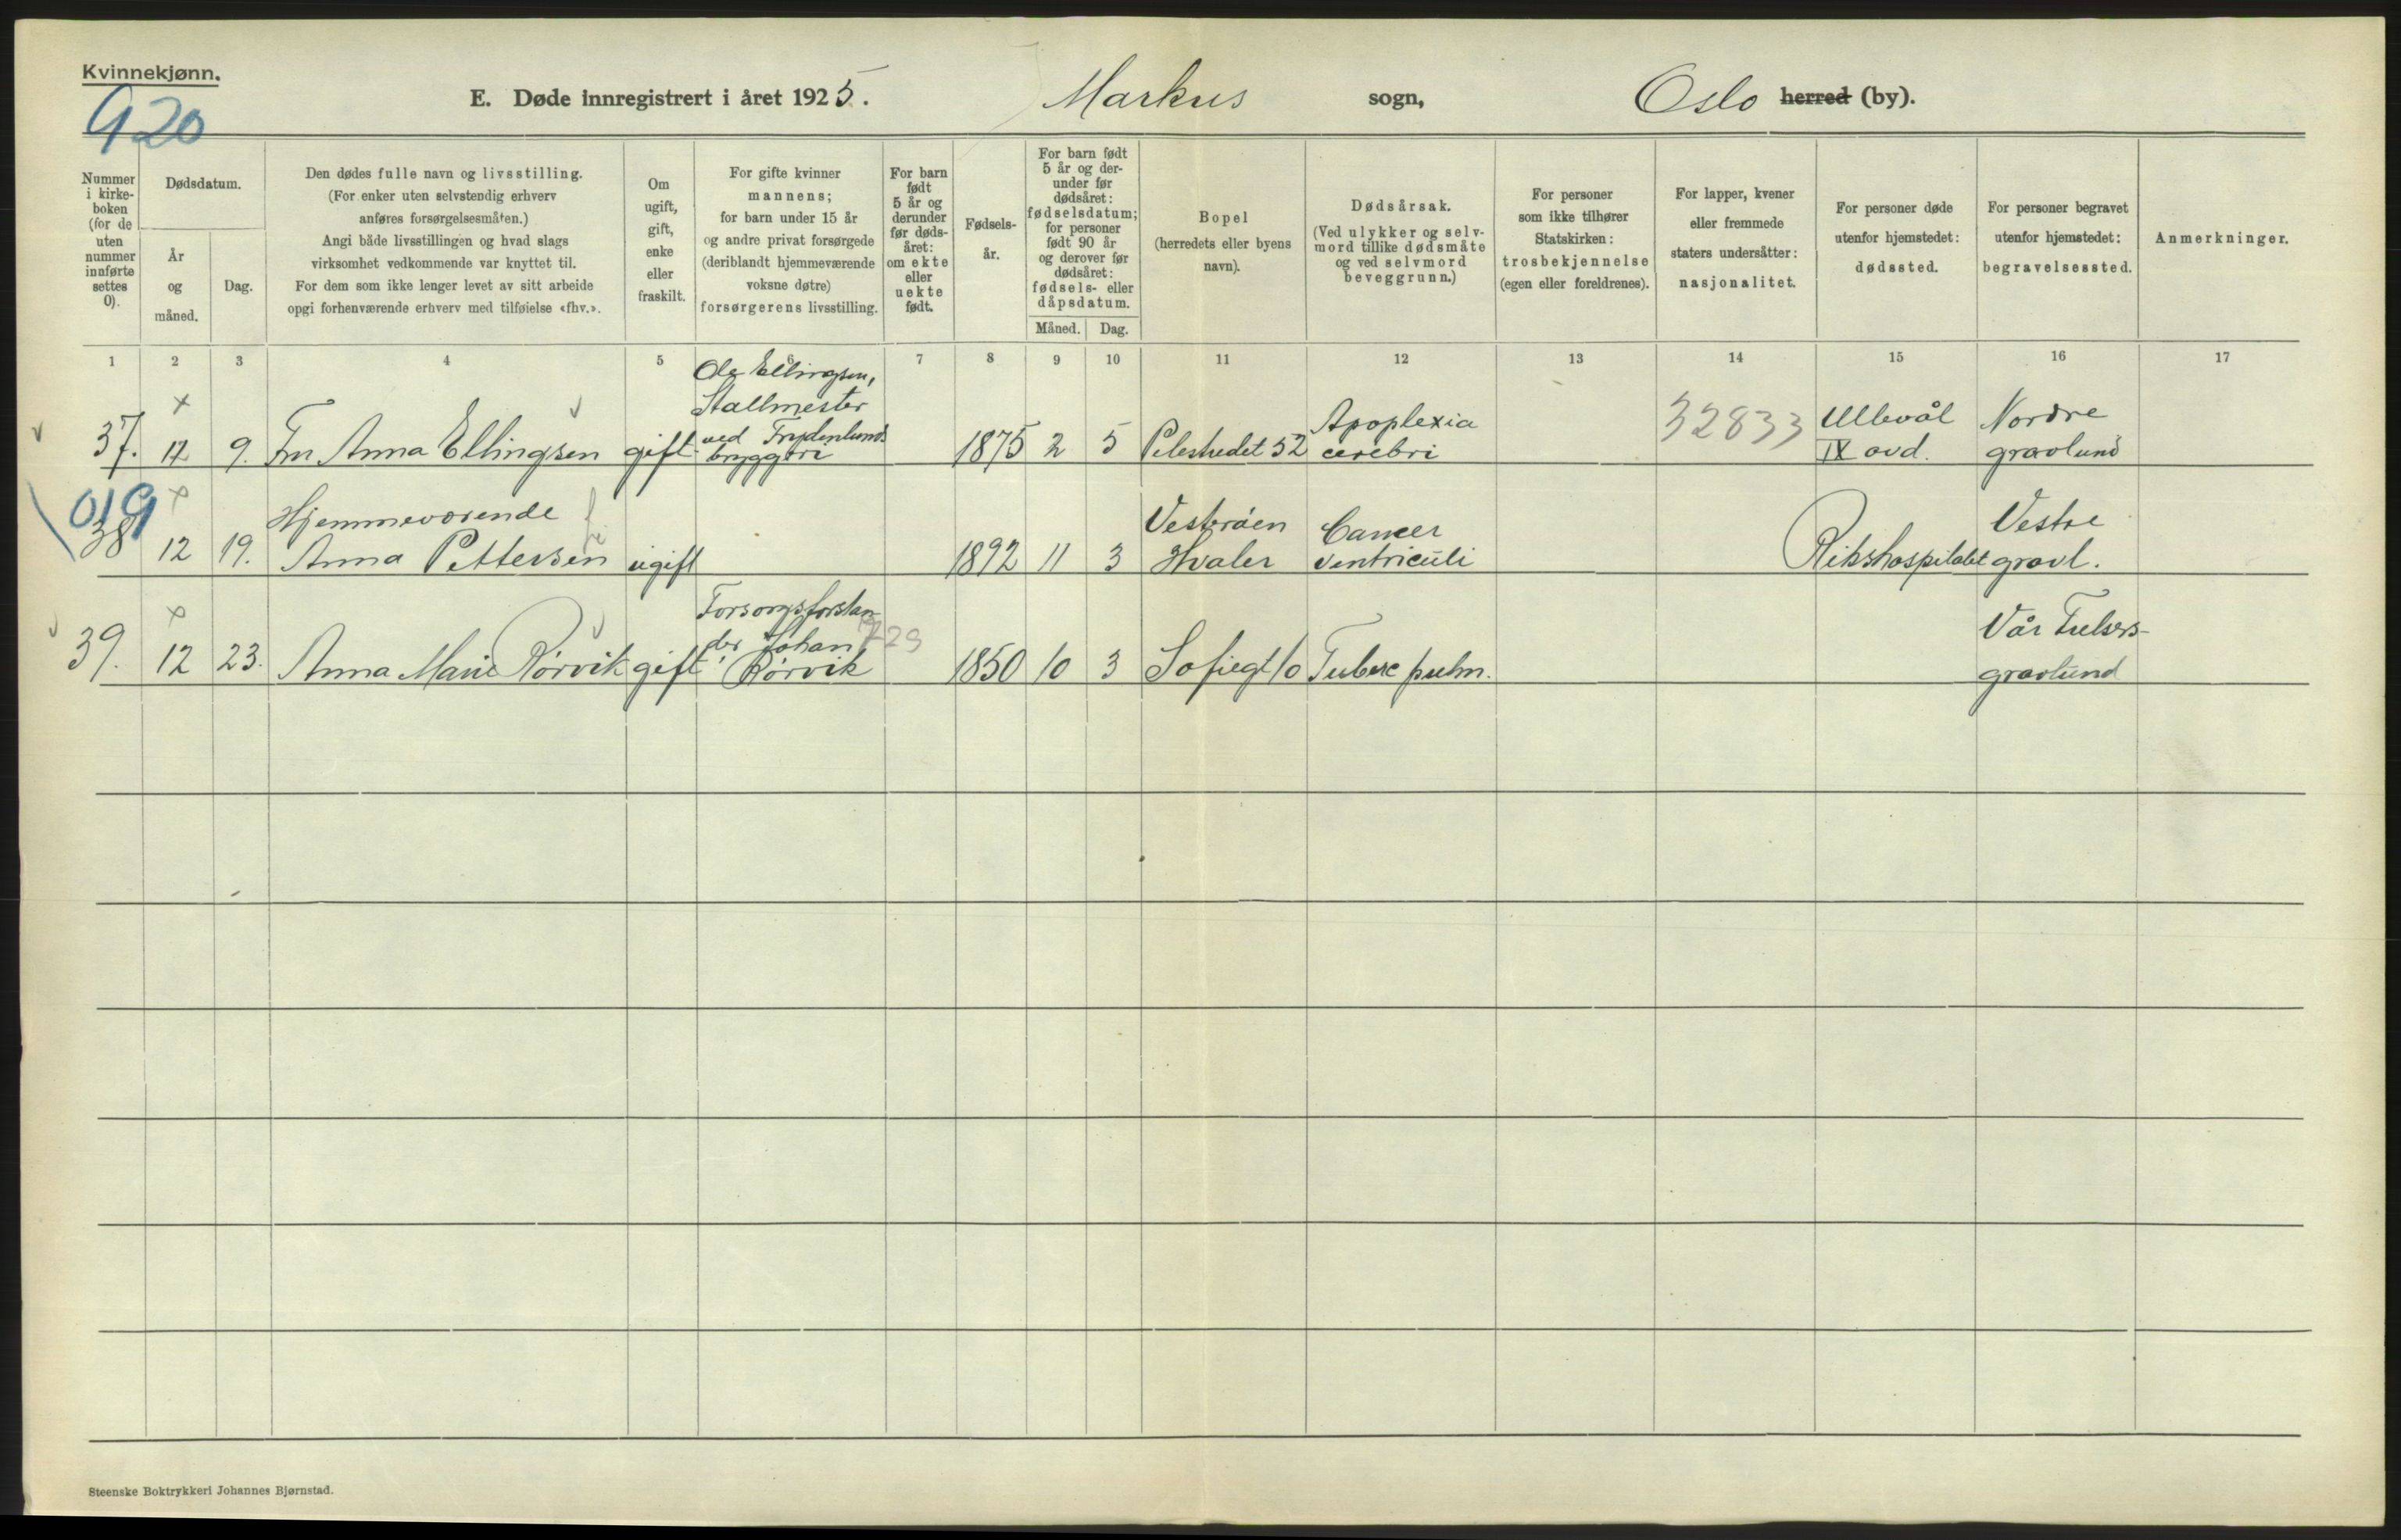 Kvinnekjønn.
920
E. Døde innregistrert i året 1925. Markus sogn, Oslo herred (by).
Nummer i kirke- boken (for de uten nummer innførte settes 0).
Dødsdatum.
År og måned.
Dag.
Den dødes fulle navn og livsstilling.
(For enker uten selvstendig erhverv
anføres forsørgelsesmåten.)
Angi både livsstillingen og hvad slags
virksomhet vedkommende var knyttet til.
For dem som ikke lenger levet av sitt arbeide
opgi forhenværende erhverv med tilføielse «fhv.».
Om ugift, gift, enke eller fraskilt.
For gifte kvinner
mannens;
for barn under 15 år
og andre privat forsørgede
(deriblandt hjemmeværende
voksne døtre)
forsørgerens livsstilling.
For barn født 5 år og derunder før døds- året: om ekte eller uekte født.
Fødsels- år.
For barn født 5 år og der- under før dødsåret: fødselsdatum; for personer født 90 år og derover før dødsåret: fødsels- eller dåpsdatum.
Måned. Dag.
Bopel
(herredets eller byens
navn).
Dødsårsak.
(Ved ulykker og selv-
mord tillike dødsmåte
og ved selvmord
beveggrunn.)
For personer
som ikke tilhører
Statskirken:
trosbekjennelse
(egen eller foreldrenes).
For lapper, kvener
eller fremmede
staters undersåtter:
nasjonalitet.
For personer døde
utenfor hjemstedet:
dødssted.
For personer begravet
utenfor hjemstedet:
begravelsessted.
Anmerkninger.
1 2 3 4 5 6 7 8 9 10 11 12 13 14 15 16 17
37. 12 9. Fru Anna Ellingsen gift
Ole Ellingsen,
Stallmester
ved Frydenlunds
bryggeri
1875 2 5 Pilestredet 52
Apoplexia
cerebri
32833
Ullevål
IX avd.
Nordre
gravlund
019
38 12 19.
Hjemmeværende
Anna Pettersen ugift
1892 11 3
Vesterøen
Hvaler
Cancer
ventriculi
Rikshospitalet
Vestre
gravl.
39. 12 23. Anna Marie Rørvik gift
Forsorgsforstan-
der Johan
Rørvik
729
1850 10 3 Sofiegt 10 Tuberc pulm.
Vår Frelsers-
gravlund
Steenske Boktrykkeri Johannes Bjørnstad.